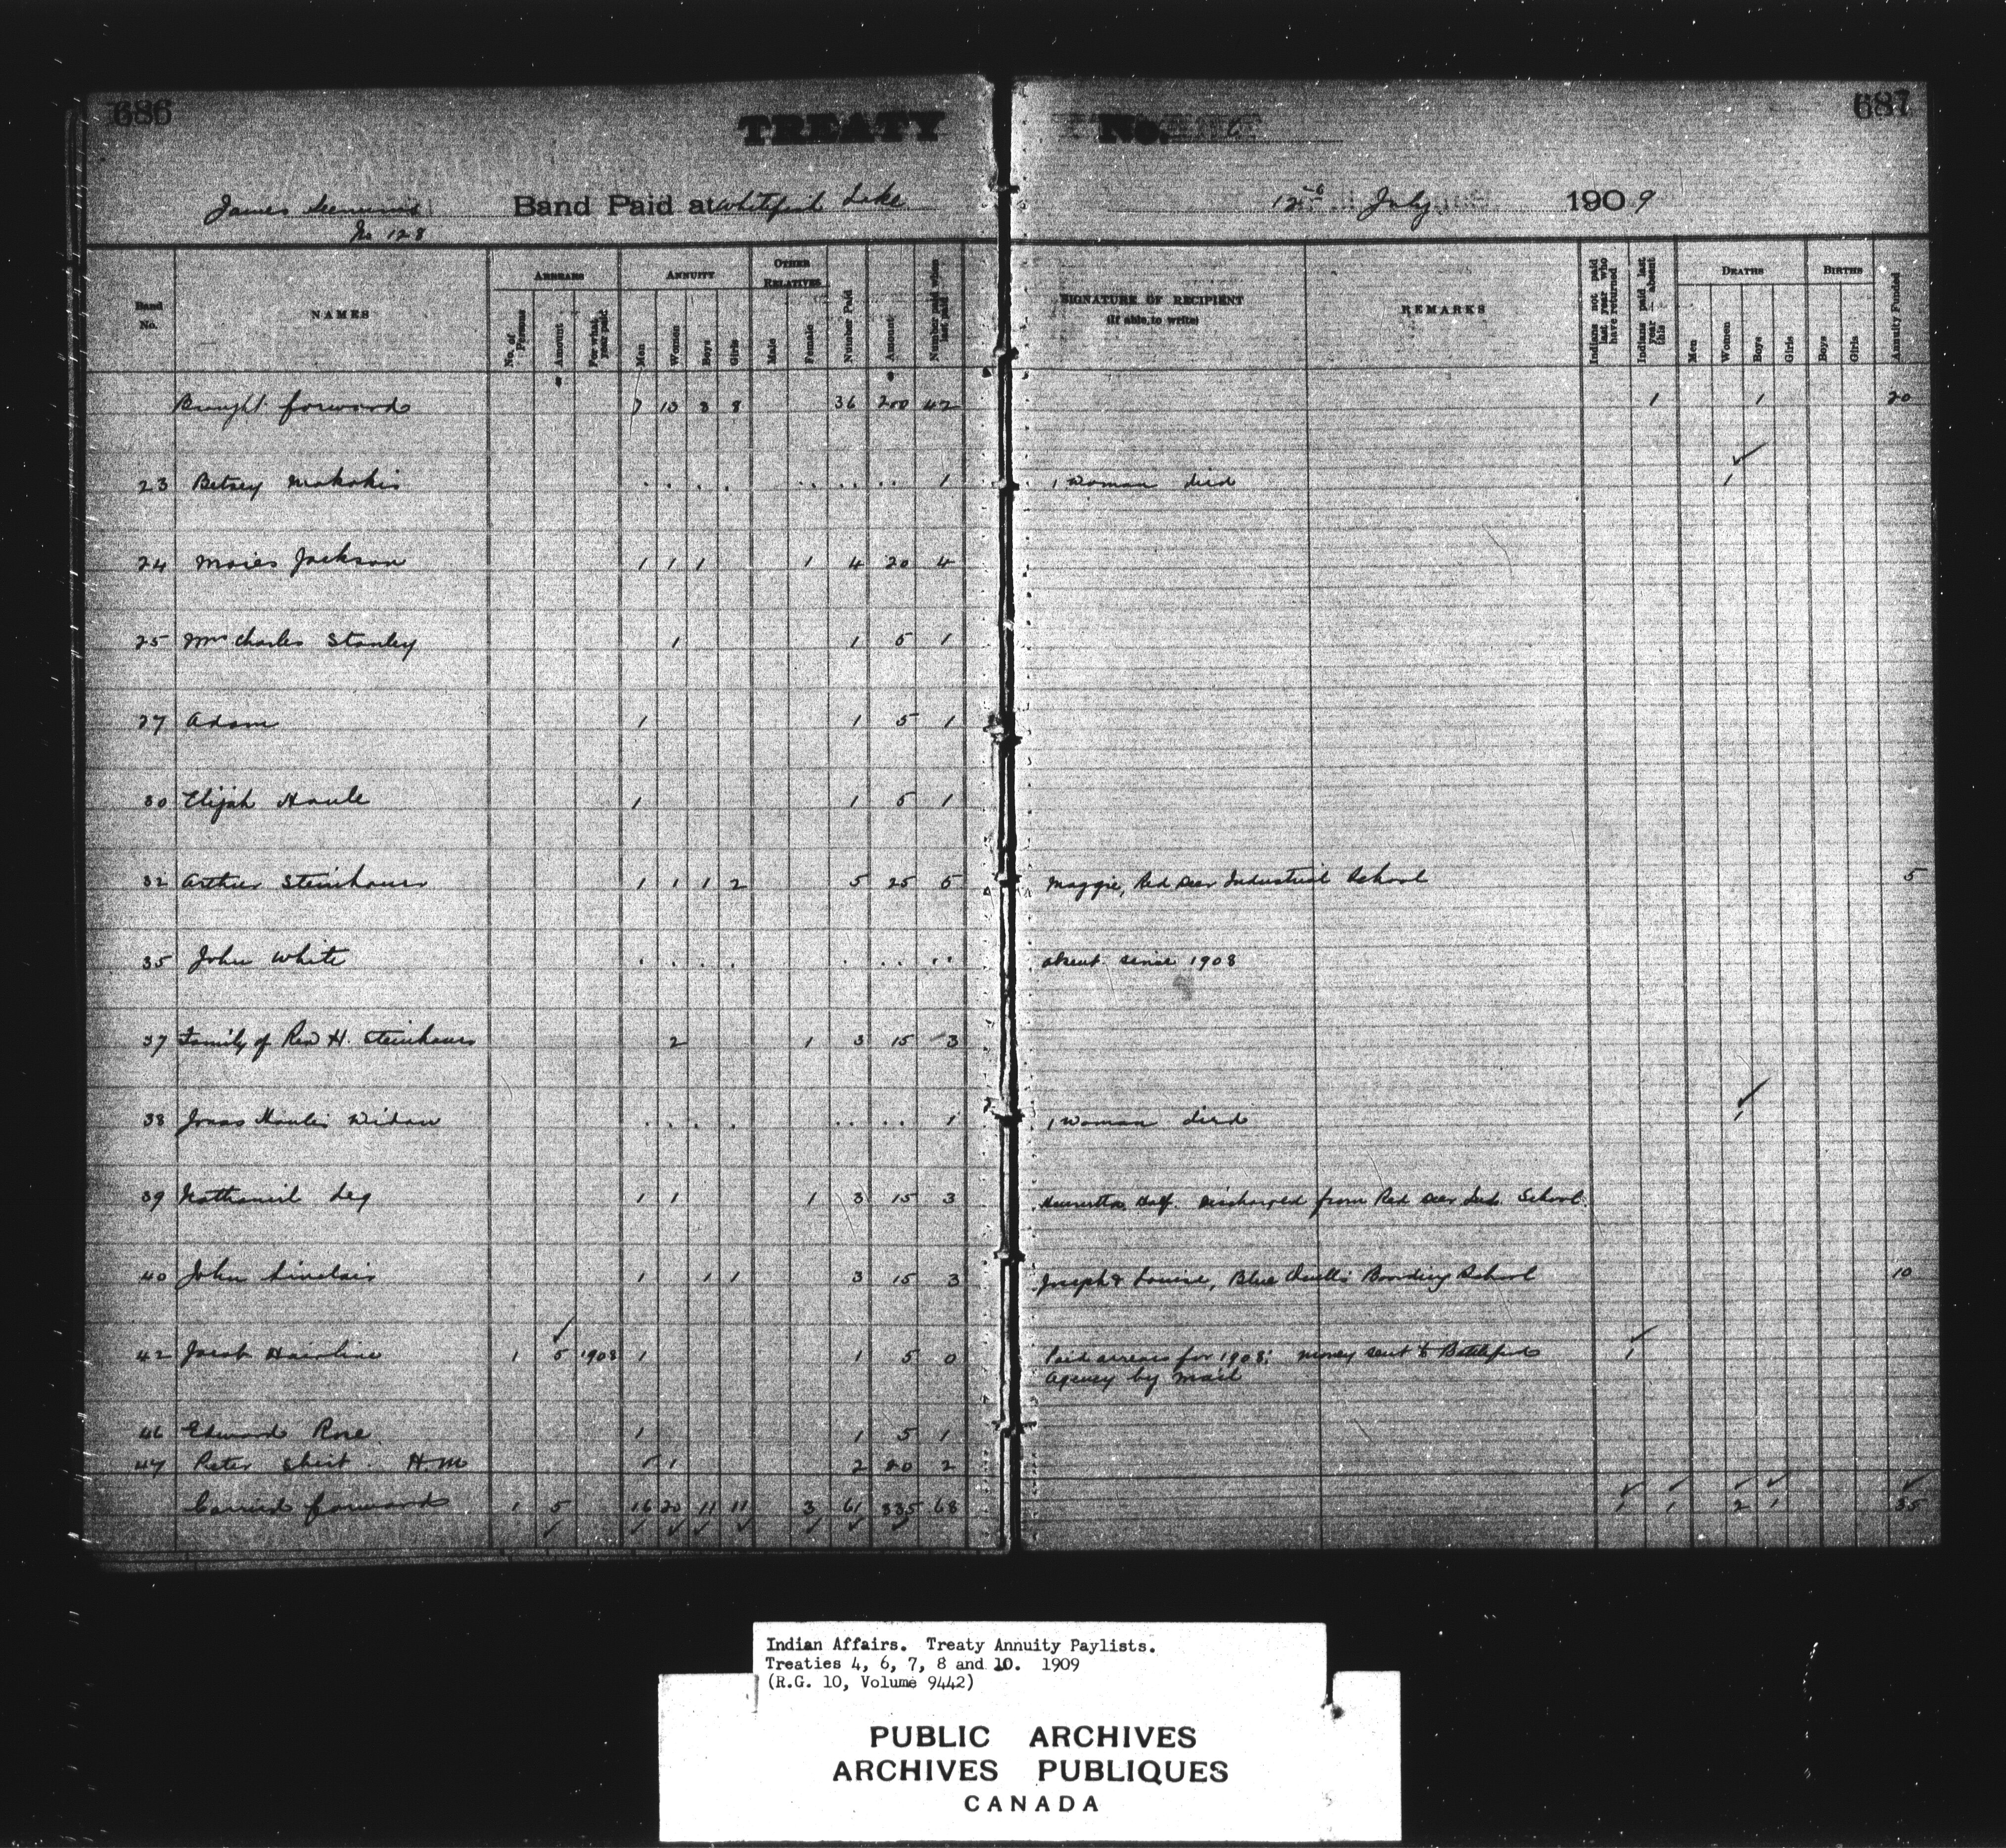 686
687
TREATY No. 6
James Seenum's Band Paid at Whitefish Lake 12th July 1909
No 128
Band No. NAMES ARREARS No. of Persons Amount For what year paid ANNUITY Men Women Boys Girls OTHER RELATIVES Male Female Number Paid Amount Number paid when last paid SIGNATURE OF RECIPIENT (If able to write) REMARKS Indians not paid last year who have returned Indians paid last year absent this DEATHS Men Women Boys Girls BIRTHS Boys Girls Annuity Funded
Brought forward 7 13 8 8 36 200 42 1 1 20
23 Betsey Makokis . . . . . . . . . . 1 1 woman died 1
24 Moies Jackson 1 1 1 1 4 20 4
25 Mrs Charles Stanley 1 1 5 1
27 Adam 1 1 5 1
30 Elijah Houle 1 1 5 1
32 Arthur Steinhauer 1 1 1 2 5 25 5 Maggie, Red Deer Industrial School 5
35 John White . . . . . . . . . absent since 1908
37 Family of Rev H. Steinhauer 2 1 3 15 3
38 Jonas Houle's Widow . . . . . . . . 1 1 woman died 1
39 Nathaniel Leg 1 1 1 3 15 3 Discharged from Red Deer Ind. School
40 John Sinclair 1 1 1 3 15 3 Joseph & Louise, Blue Quills Boarding School 10
42 Jacob Hairline 1 5 1908 1 1 5 0 Paid arrears for 1908; money sent to Battleford 1
Agency by mail
46 Edward Rose 1 1 5 1
47 Peter Shirt H.M 1 1 2 20 2
Carried forward 1 5 16 20 11 11 3 61 335 68 1 1 2 1 35
Indian Affairs. Treaty Annuity Paylists.
Treaties 4, 6, 7, 8 and 10. 1909
(R.G. 10, Volume 9442)
PUBLIC ARCHIVES
ARCHIVES PUBLIQUES
CANADA